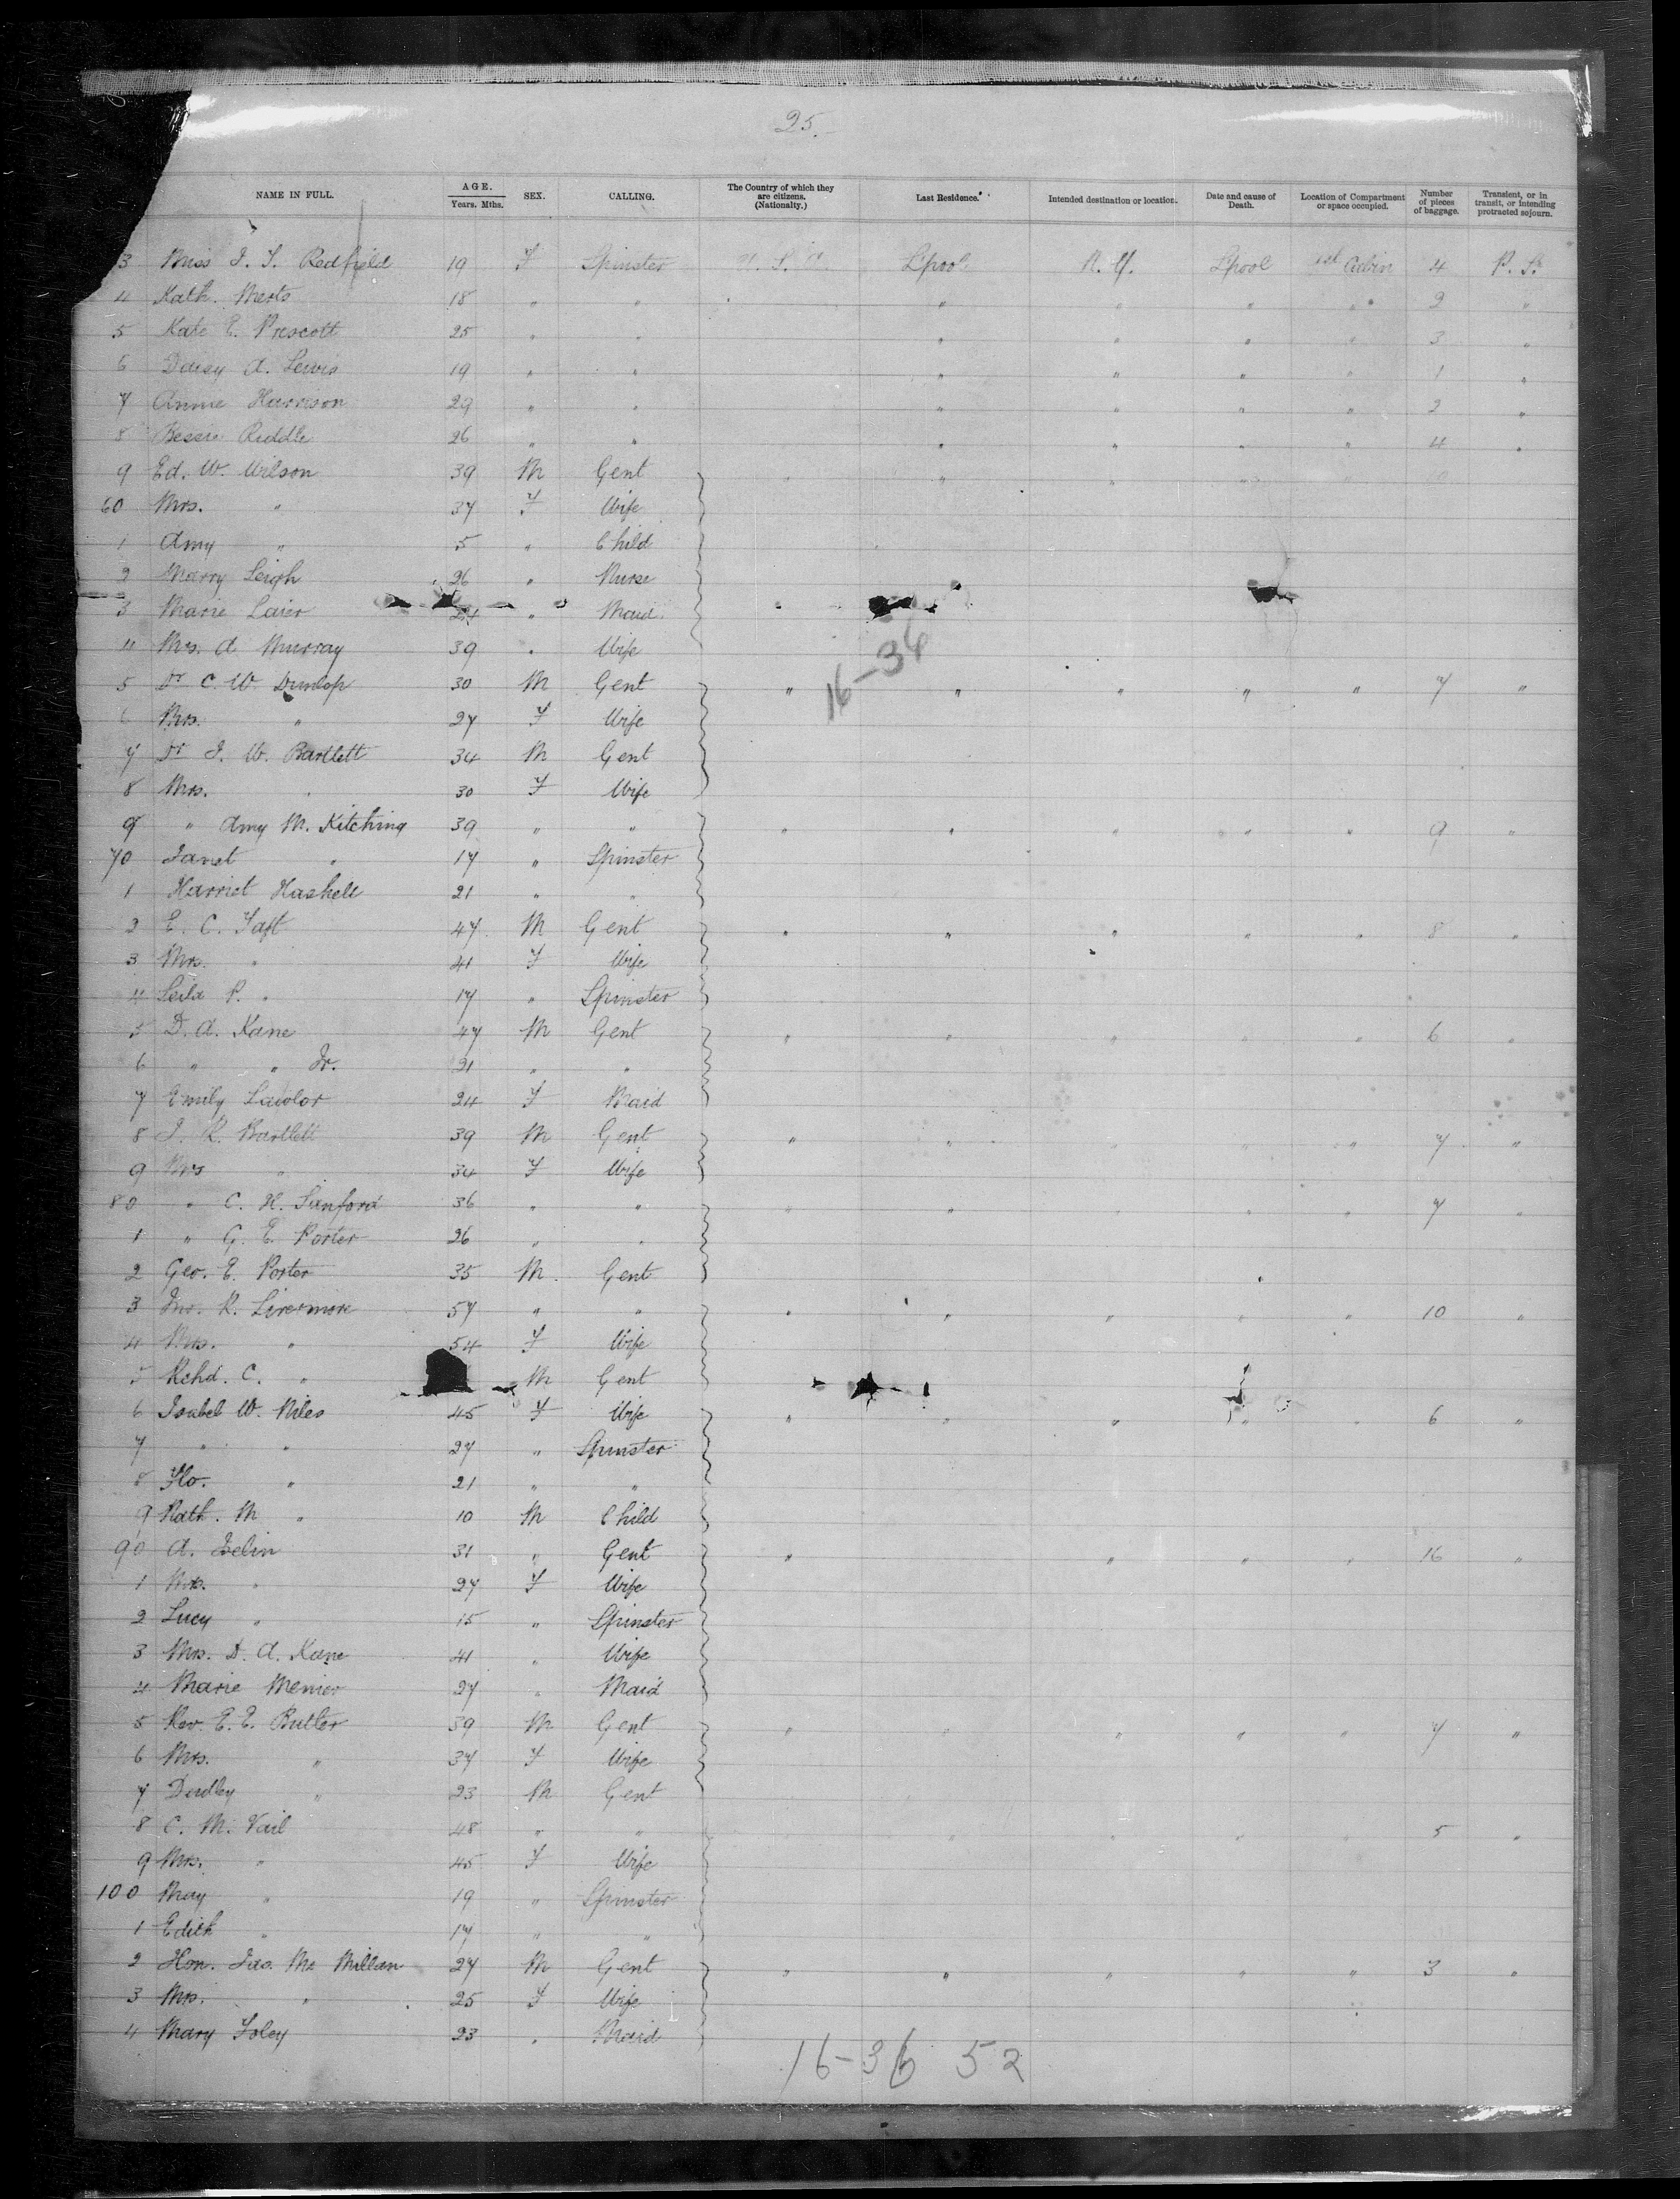 25.
NAME IN FULL. AGE. Years. Mths. SEX. CALLING. The Country of which they are citizens. (Nationalty.) Last Residence. Intended destination or location. Date and cause of Death. Location of Compartment or space occupied. Number of pieces of baggage. Transient, or in transit, or intending protracted sojourn.
3 Miss J. T. Redfield 19 F Spinster U. S. A L'pool N. Y. L'pool 1st Cabin 4 P. S.
4 Kath. 18 " " " " " " 2 "
5 Kate E. Prescott 25 " " " " " " 3 "
6 Daisy A. Lewis 19 " " " " " " 1 "
7 Annie Harrison 29 " " " " " " 2 "
8 Bessie Riddle 26 " " " " " " 4 "
9 Ed. W. Wilson 39 M Gent " " " " "
60 Mrs. " 37 F Wife
1 Amy " 5 " Child
2 Marry Leigh 26 " Nurse
3 Marie Laier 24 " Maid
4 Mrs. A Murray 39 " Wife
16-36
5 Dr C. W. Dunlop 30 M Gent " " " " " 7 "
6 Mrs. " 27 F Wife
7 Dr J. W. Bartlett 34 M Gent
8 Mrs. " 30 F Wife
9 " Amy M. Kitching 39 " " " " " " " 9 "
70 Janet " 17 " Spinster
1 Harriet Haskell 21 " "
2 E. C. Taft 47 M Gent " " " " " 8 "
3 Mrs. " 41 F Wife
4 Leila P. " 17 " Spinster
5 D. A. Kane 47 M Gent " " " " " 6 "
6 " " Jr. 21 " "
7 Emily Lawlor 24 F Maid
8 J. R. Bartlett 39 M Gent " " " " " 7 "
9 Mrs " 34 F Wife
80 " C. H. Sanford 36 " " " " " " " 7 "
1 " G. E. Porter 26 " "
2 Geo. E. Porter 35 M. Gent
3 Jno. R. Livermore 57 " " " " " " " 10 "
4 Mrs. " 54 F Wife
5 Rchd. C. " M Gent
6 Isabel W. Niles 45 F Wife " " " " " 6 "
7 " " 27 " Spinster
8 Flo. " 21 " "
9 Nath. M " 10 M Child
90 A. Iselin 31 " Gent " " " " 16 "
1 Mrs. " 27 F Wife
2 Lucy " 15 " Spinster
3 Mrs. D. A. Kane 41 " Wife
4 Marie Menier 27 " Maid
5 Rev. E. E. Butler 39 M Gent " " " " " 7 "
6 Mrs. " 37 F Wife
7 Dudley " 23 M Gent
8 C. M. Vail 48 " " " " " " 5 "
9 Mrs. " 45 F Wife
100 May " 19 " Spinster
1 Edith " 17 " "
2 Hon. Jas. Mc Millan 27 M Gent " " " " " 3 "
3 Mrs. " 25 F Wife
4 Mary Foley 23 " Maid
16-36 52